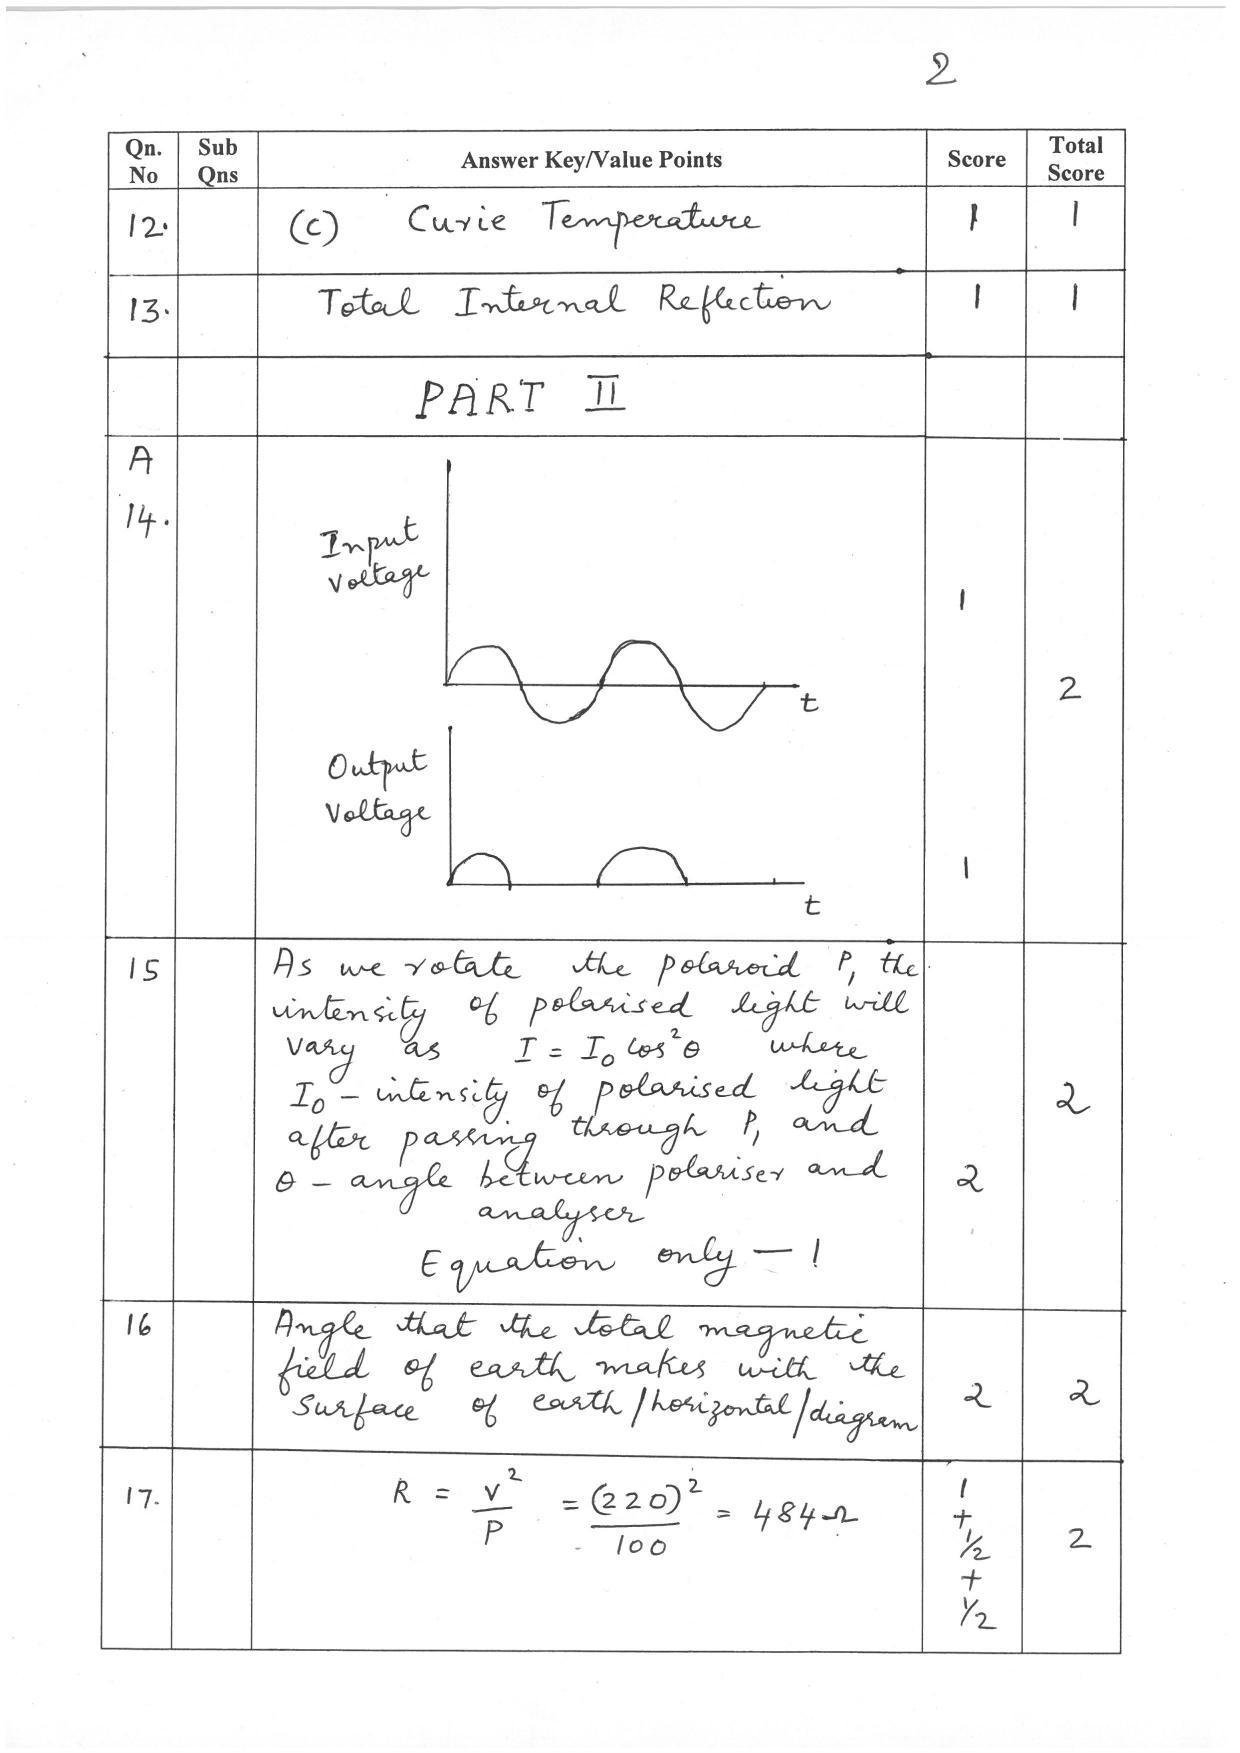 2
Qn. No | Sub Qns | Answer Key/Value Points | Score | Total Score
12. | (c) Curie Temperature | 1 | 1
13. | Total Internal Reflection | 1 | 1
PART II
A
14.
Input
Voltage
1
t
2
Output
Voltage
1
t
15 As we rotate the polaroid P, the
intensity of polarised light will
vary as I = I₀ cos²θ where
I₀ – intensity of polarised light
2
after passing through P, and
θ – angle between polariser and
2
analyser
Equation only – 1
16 Angle that the total magnetic
field of earth makes with the
surface of earth/horizontal/diagram
2 2
17. R = V²/P = (220)²/100 = 484Ω
1
+
1/2
+
1/2
2